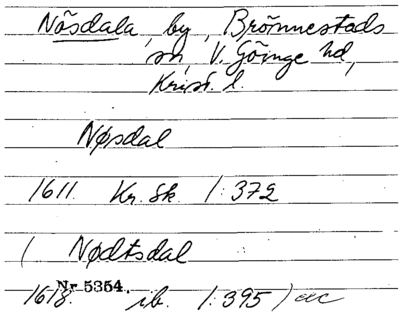 Nösdala, by, Brönnestads
sn, V. Göinge hd,
Krist. l.
Nøsdal
1611. Kr. Sk. 1:372
( Nødtsdal
Nr 5354.
1618. ib. 1:395) etc